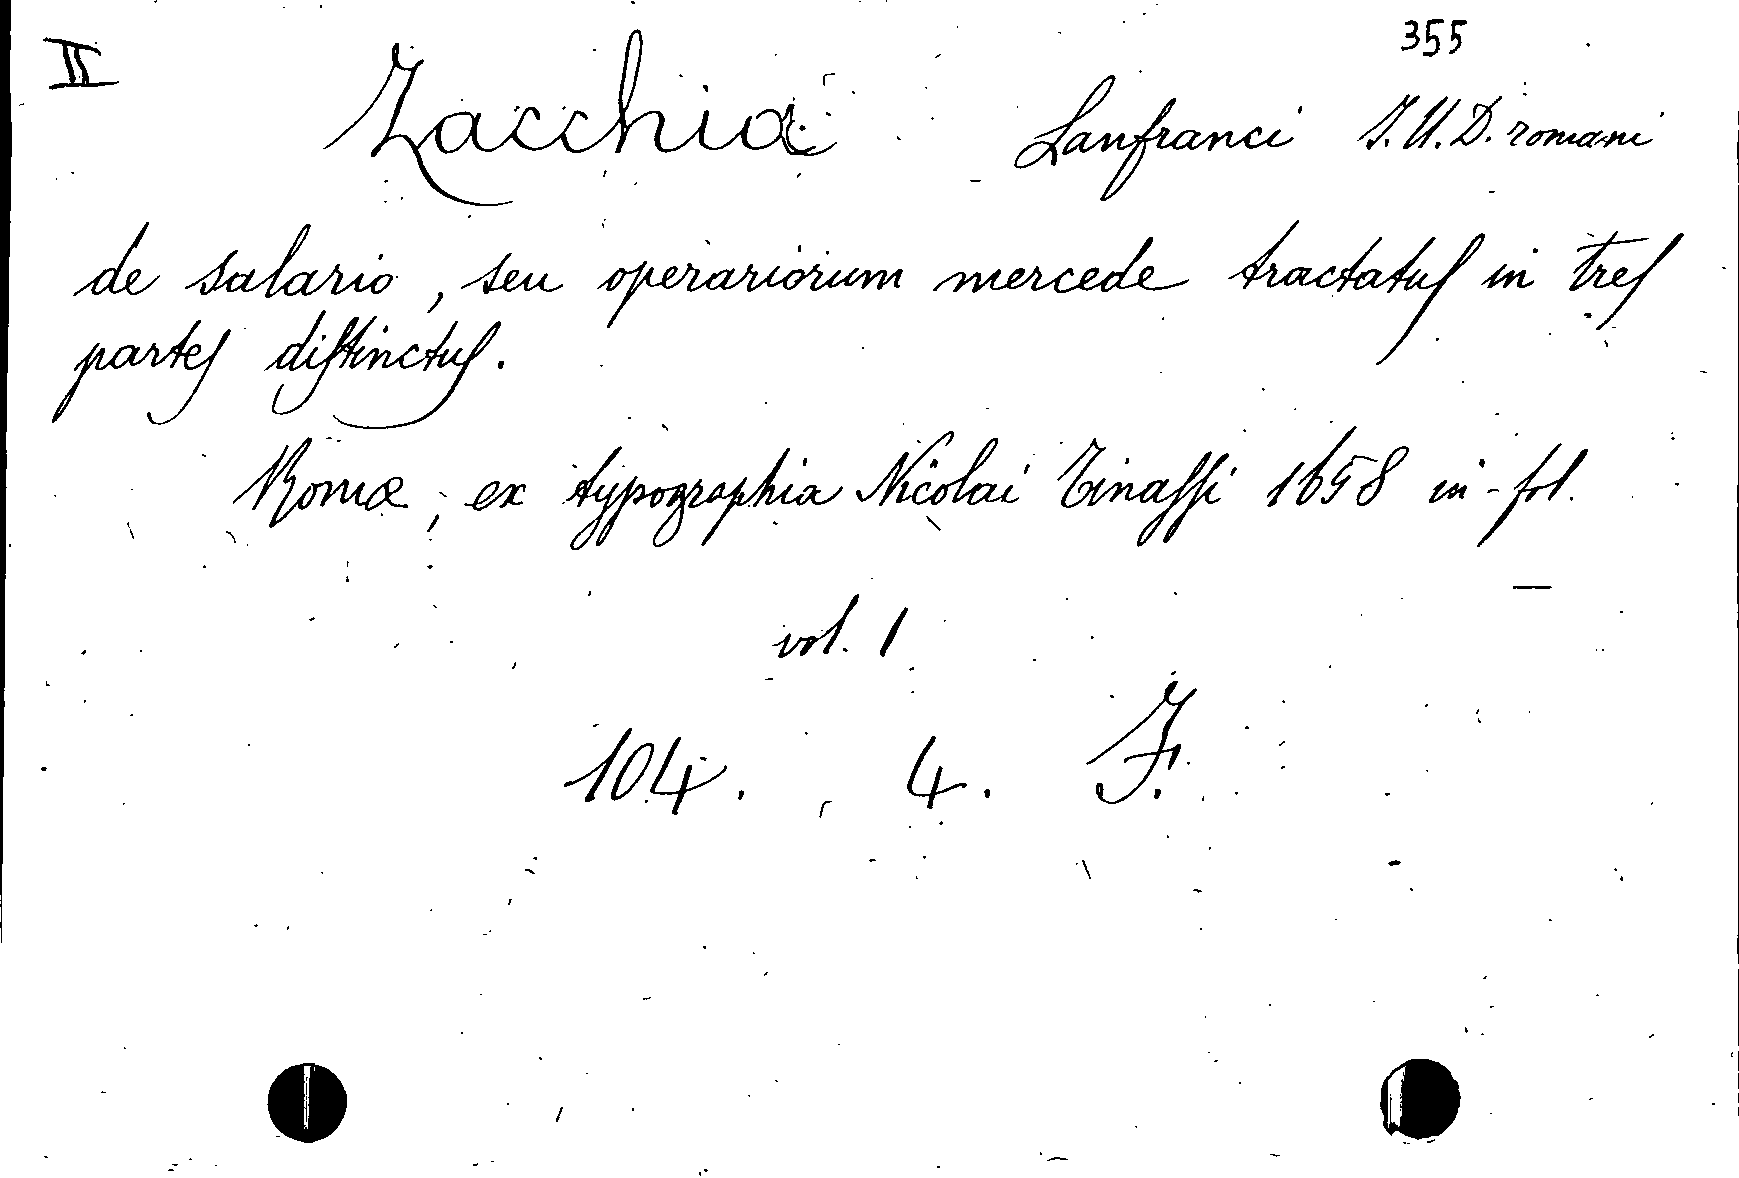 II 355
Zacchia Lanfranci J. U. D. romani
de salario, seu operariorum mercede tractatus in tres
partes distinctus.
Romæ, ex typographia Nicolai Tinassi 1658 in-fol.
vol. 1
104. 4. F.